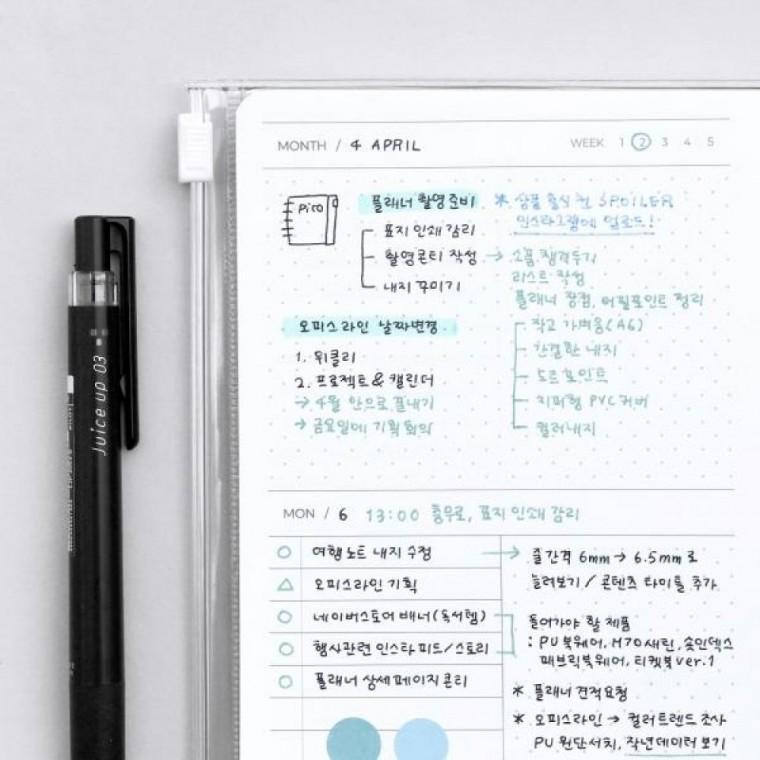 MONTH / 4 APRIL
WEEK 1 2 3 4 5
Pico
플래너 촬영 준비
표지 인쇄 감리
촬영콘티 작성 →
내지 꾸미기
* 상품 출시 전 SPOILER
인스타그램에 업로드!
소품 챙겨두기
리스트 작성
플래너 장점, 어필포인트 정리
작고 가벼움(A6)
간결한 내지
도트 포인트
지퍼형 PVC 커버
컬러내지
오피스라인 날짜변경
1. 위클리
2. 프로젝트 & 캘린더
→ 4월 안으로 끝내기
→ 금요일에 기획 회의
MON / 6 13:00 충무로, 표지 인쇄 감리
여행노트 내지 수정 →
오피스라인 기획
네이버스토어 배너(독서템)
행사관련 인스타 피드/스토리
플래너 상세페이지 콘티
줄간격 6mm → 6.5mm로
늘려보기 / 콘텐츠 타이틀 추가
들어가야 할 제품
: PU 북웨어, M70 새틴, 숏인덱스
패브릭북웨어, 티켓북 ver.1
* 플래너 견적요청
* 오피스라인 → 컬러트렌드 조사
PU 원단서치, 작년데이터 보기
Juice up 03